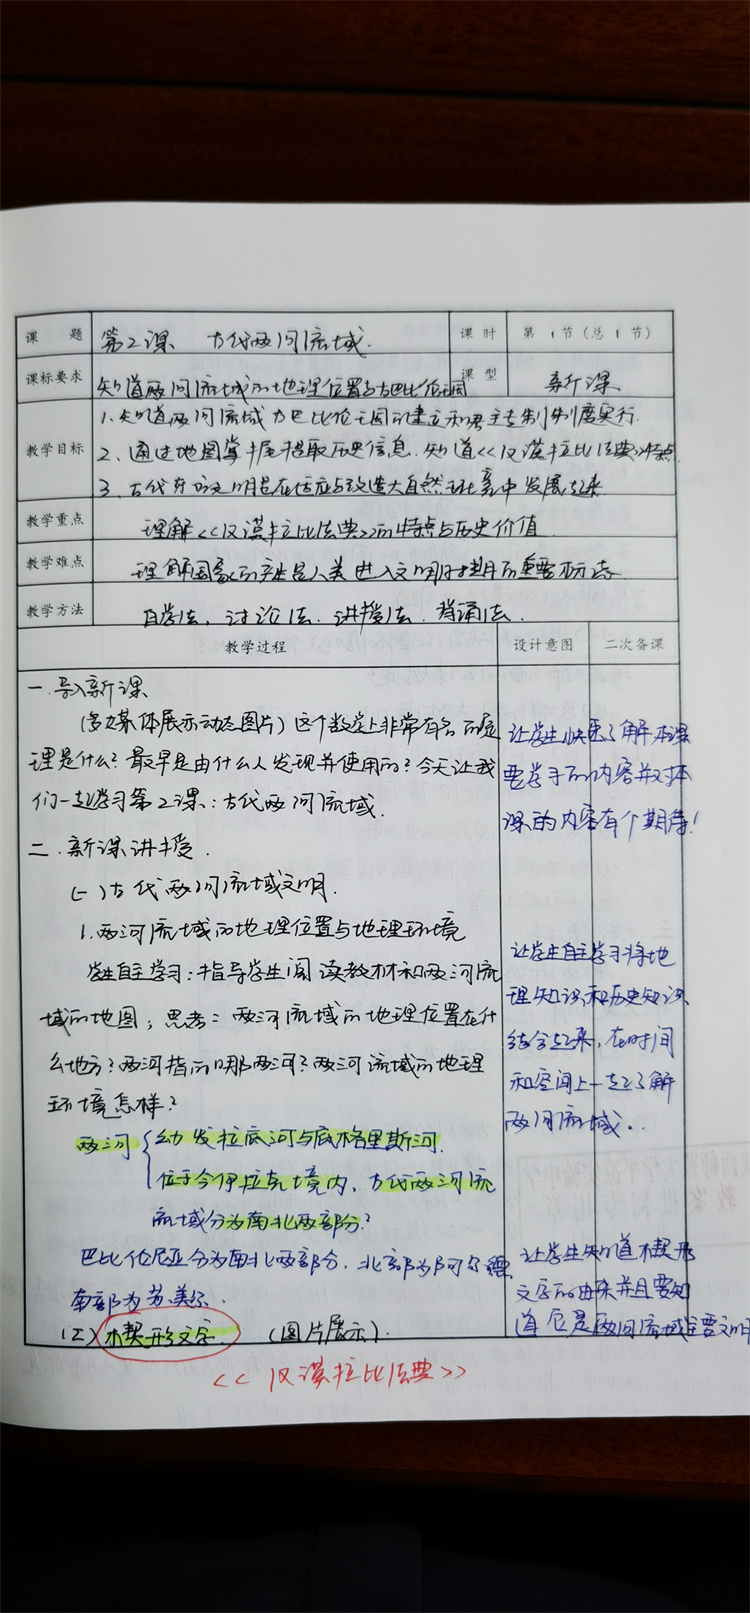 课 题 第2课 古代两河流域 课时 第1节(总1节)
课标要求 知道两河流域的地理位置与古巴比伦王国 课型 新课
教学目标 1、知道两河流域古巴比伦王国的建立和君主专制制度实行
2、通过地图掌握提取历史信息、知道<<汉谟拉比法典>>特点
3、古代东方文明是在适应与改造大自然中发展起来
教学重点 理解<<汉谟拉比法典>>的特点与历史价值
教学难点 理解国家的产生是人类进入文明时期的重要标志
教学方法 自学法、讨论法、讲授法、背诵法、
教学过程 设计意图 二次备课
一、导入新课
(多媒体展示动态图片)这个数学上非常有名的定
理是什么?最早是由什么人发现并使用的?今天让我
们一起学习第2课:古代两河流域.
让学生快速了解本课
要学习的内容并对本
课的内容有个期待!
二、新课讲授.
(一)古代两河流域文明.
1.两河流域的地理位置与地理环境
学生自主学习:指导学生阅读教材和两河流
域的地图;思考:两河流域的地理位置在什
么地方?两河指的哪两河?两河流域的地理
环境怎样?
让学生自主学习将地
理知识和历史知识
结合起来,在时间
和空间上一起了解
两河流域。
两河 幼发拉底河与底格里斯河.
位于今伊拉克境内、古代两河流
流域分为南北两部分?
巴比伦尼亚分为南北两部分、北部为阿卡德
南部为苏美尔
(二)楔形文字 (图片展示).
让学生知道楔形
文字的由来并且要知
道它是两河流域主要文明
<<汉谟拉比法典>>